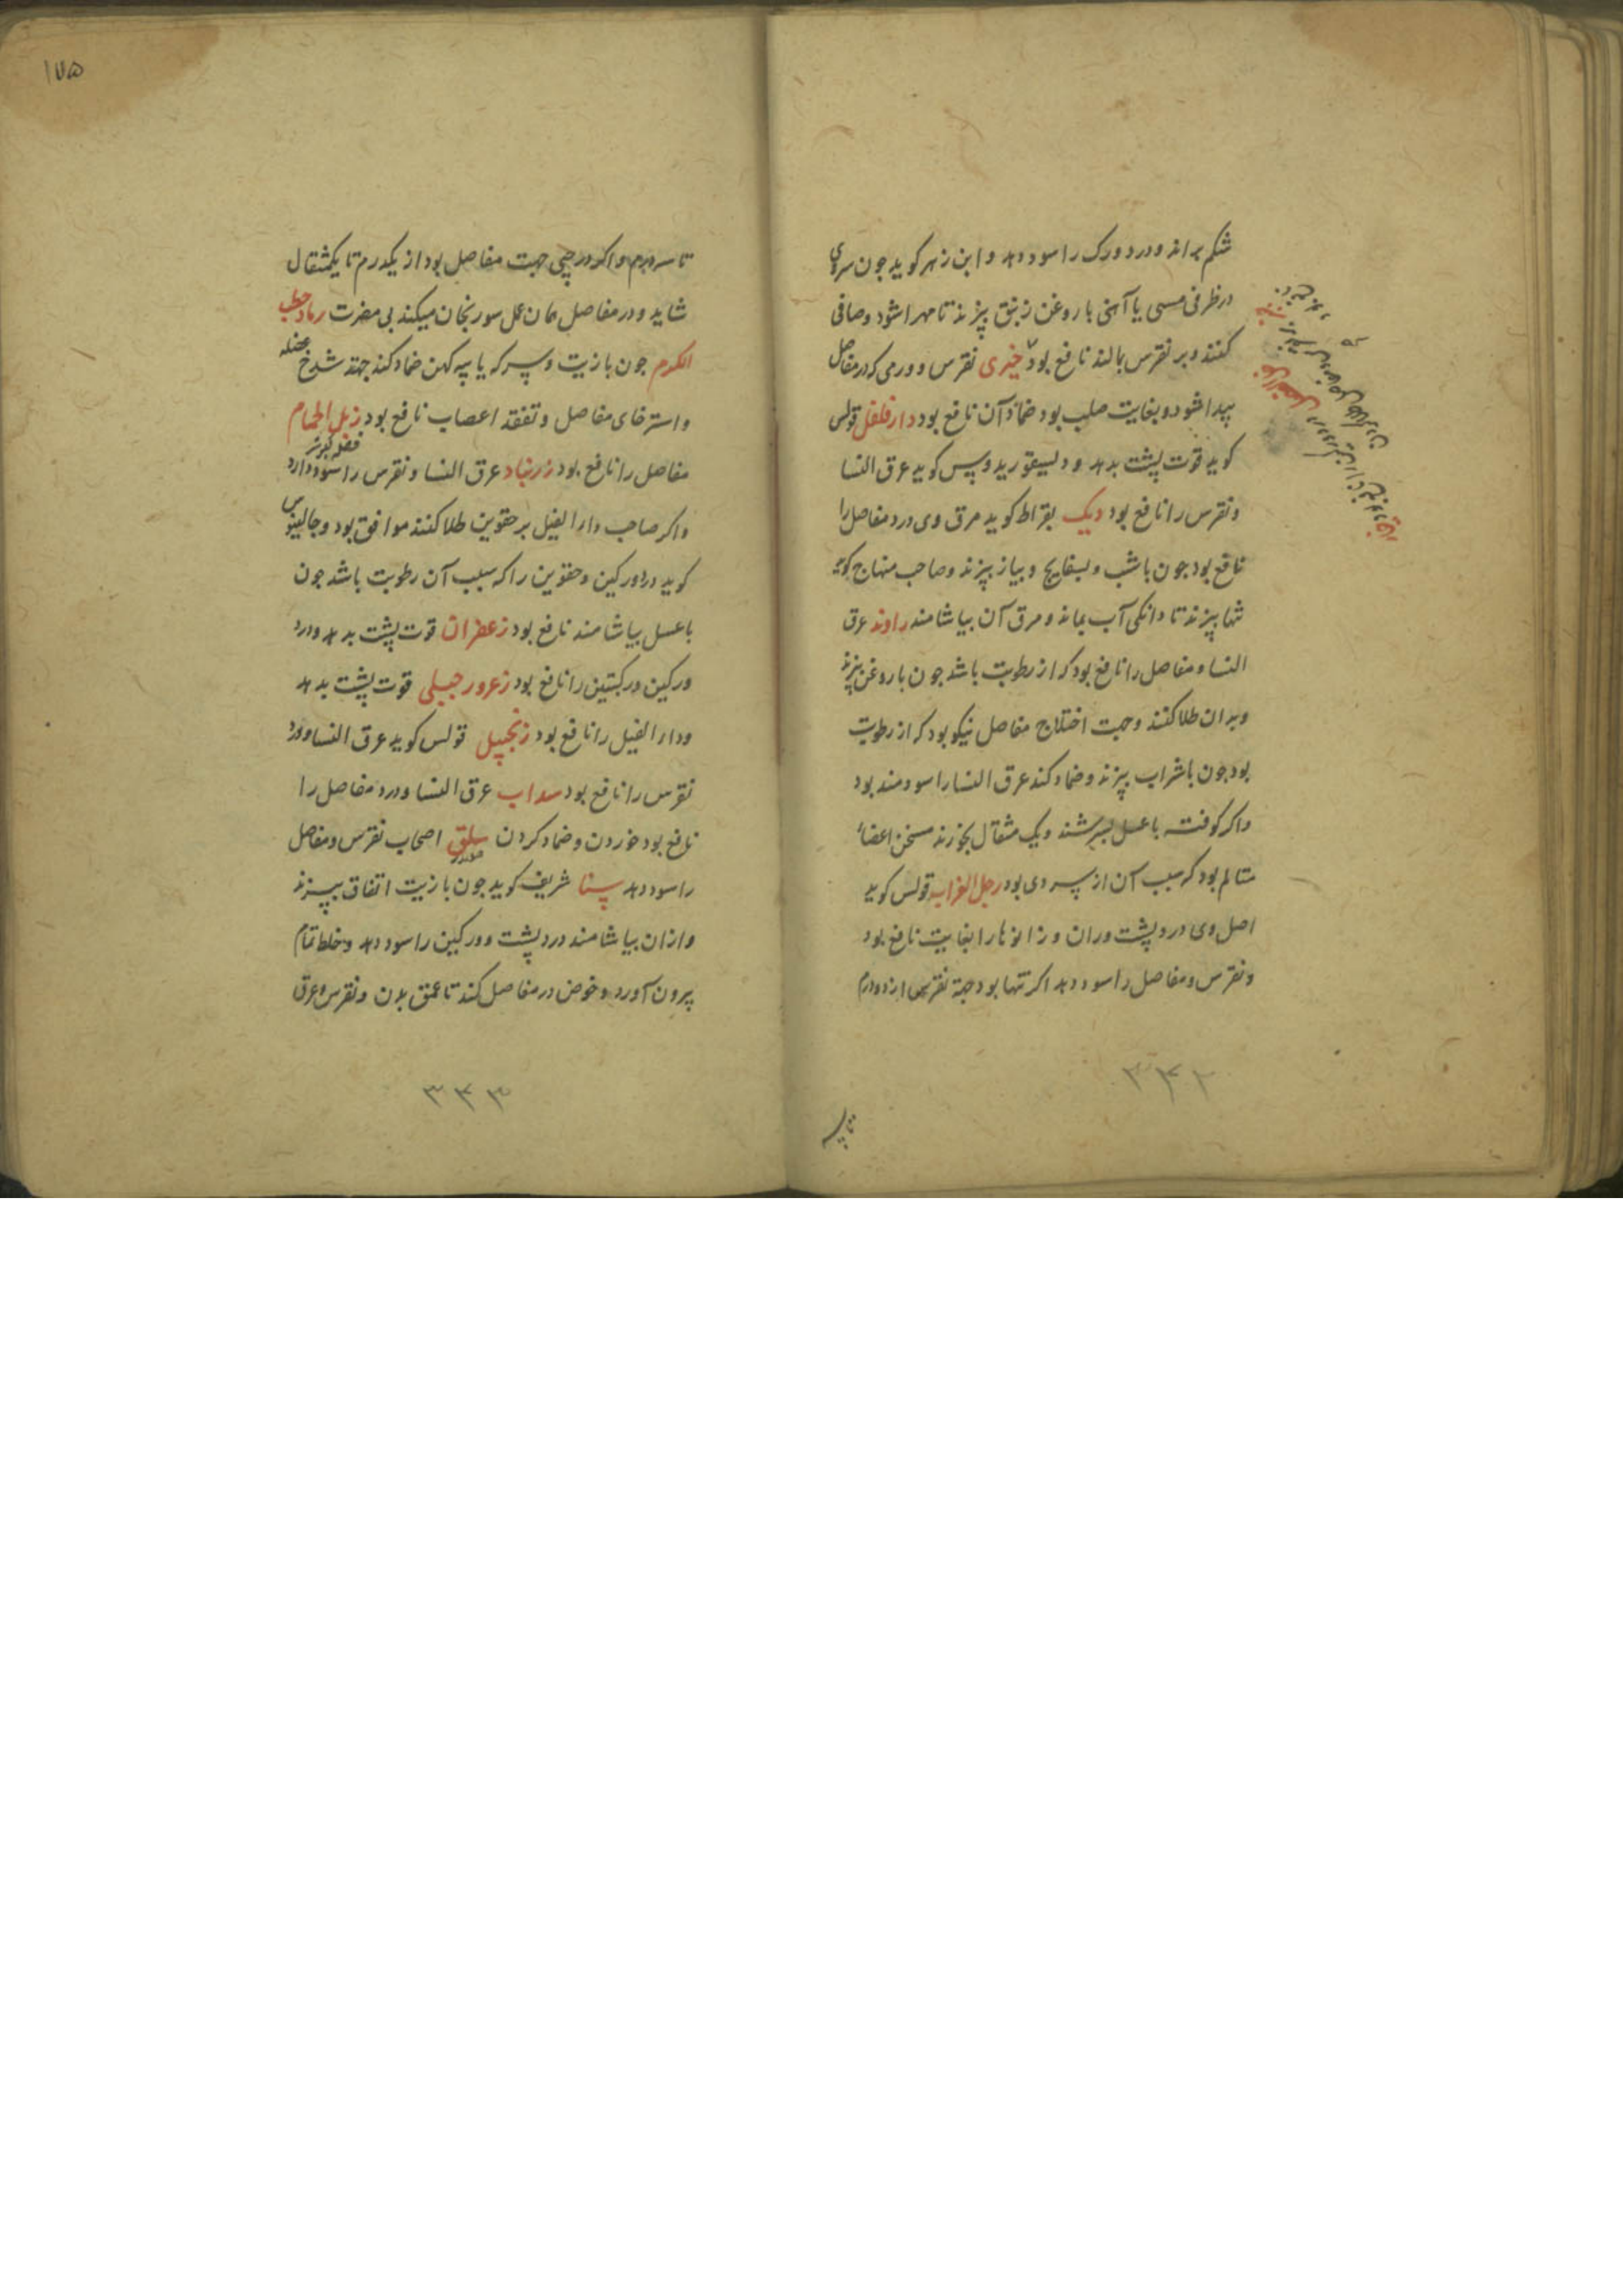 شکم براند و درد ورک را سود دهد و ابن زهر کوید جون سروی
در ظرفی مسی یا آهنی با روغن زنبق بپزند تا مهرا شود و صافی
کنند و بر نقرس بمالند نافع بود خیری نقرس و ورمی که در مفاصل
پیدا شود و بغایت صلب بود ضماد آن نافع بود دارفلفل قولس
کوید قوت پشت بدهد و دیسیقوریدوس کوید عرق النسا
و نقرس را نافع بود دیک بقراط کوید مرق وی درد مفاصل را
نافع بود جون با شب و بسفایج و بیاز بپزند و صاحب منهاج کوید
بپزند تا دانکی آب بماند و مرق آن بیاشامند راوند عرق
النسا و مفاصل را نافع بود که از رطوبت باشد جون با روغن بپزند
و بدان طلا کنند و جهت اختلاج مفاصل نیکو بود که از رطوبت
بود جون با شراب بپزند و ضماد کنند عرق النسا را سودمند بود
و اکر کوفته با عسل بسرشند و یک مثقال بخورند مسخن اعضاء
متالم بود که سبب آن از سردی بود رجل الغراب قولس کوید
اصل وی درد پشت و ران و زانوها را بغایت نافع بود
و نقرس و مفاصل را سود دهد اکر تنها بود جهة نقرس از دو درم
۳۴۲
تا سه
۱۷۵
تا سه درم و اکر در حبی جهت مفاصل بود از یکدرم تا یکمثقال
شاید و در مفاصل همان عمل سورنجان میکند بی مضرت رماد حطب
الکرم جون با زیت و سرکه یا پیه کهن ضماد کنند جهة شدخ عضله
و استرخای مفاصل و تعقد اعصاب نافع بود زبل الحمام
مفاصل را نافع بود زرنباد عرق النسا و نقرس را سود دارد
و اکر صاحب داء الفیل بر حقوین طلا کنند موافق بود و جالینوس
کوید درد ورکین و حقوین را که سبب آن رطوبت باشد جون
با عسل بیاشامند نافع بود زعفران قوت پشت بدهد و درد
ورکین و رکبتین را نافع بود زعرور جبلی قوت پشت بدهد
و داء الفیل را نافع بود زنجبیل قولس کوید عرق النسا و درد
نقرس را نافع بود سداب عرق النسا و درد مفاصل را
نافع بود خوردن و ضماد کردن سلق اصحاب نقرس و مفاصل
را سود دهد سنا شریف کوید جون با زیت اتفاق بپزند
و ازان بیاشامند درد پشت و ورکین را سود دهد و خلط تمام
بیرون آورد و خوض در مفاصل کند تا عمق بدن و نقرس و عرق
۳۴۳